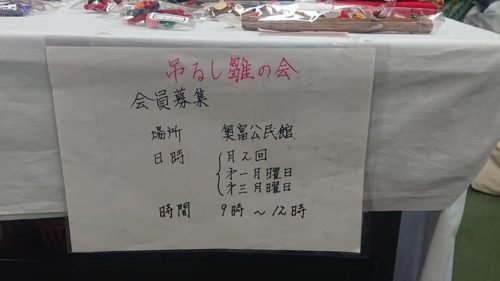 吊るし雛の会
会員募集
場所 奥富公民館
日時 月2回
才一月曜日
才三月曜日
時間 9時～12時